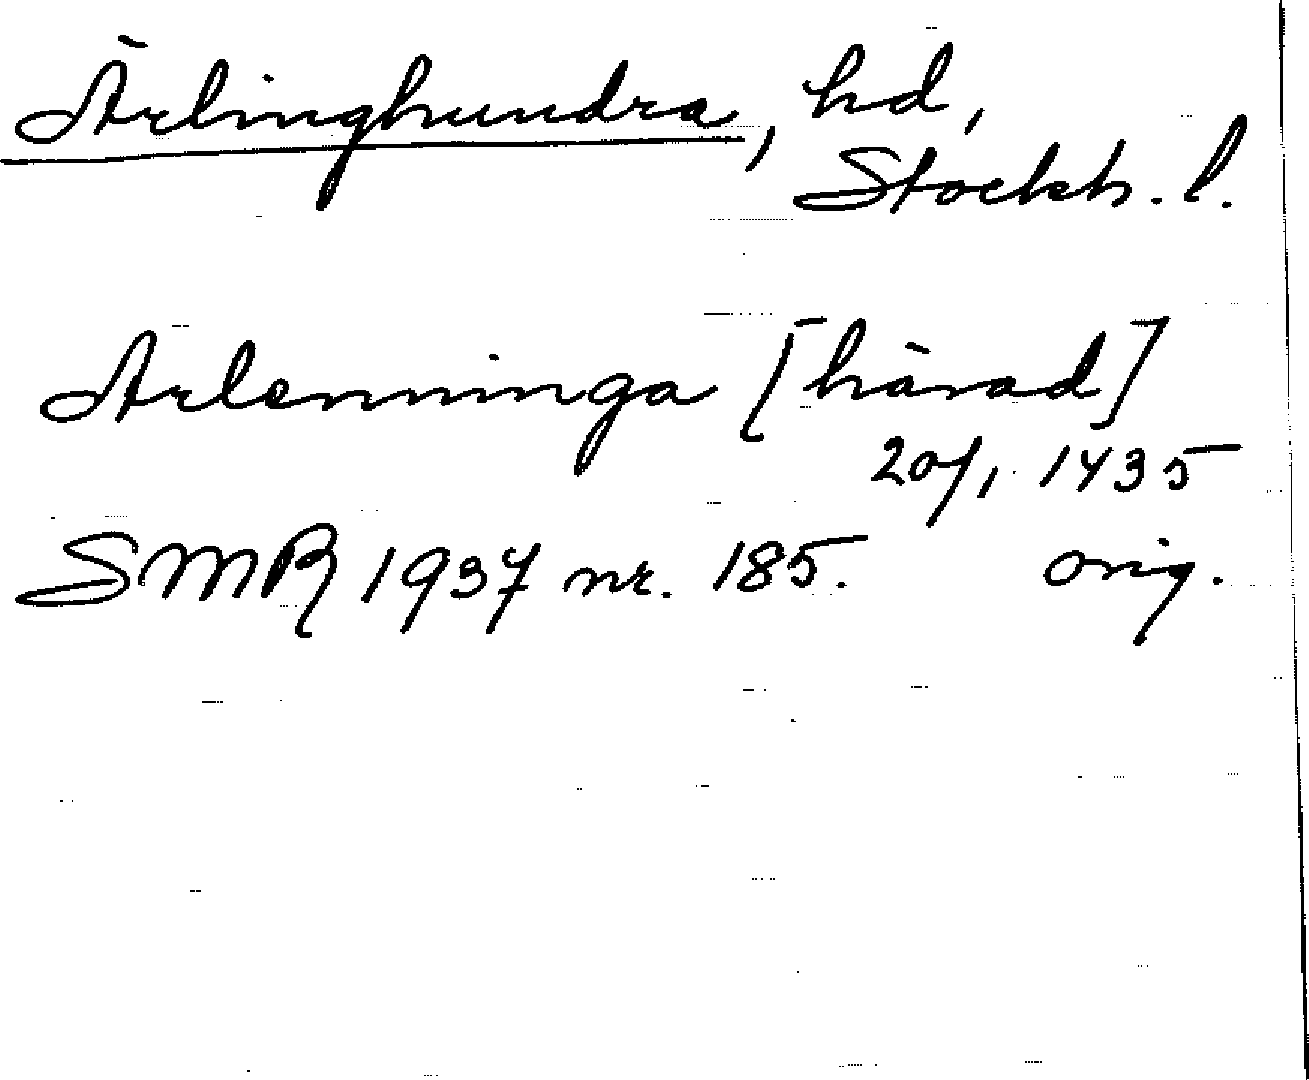 Ärlinghundra, hd,
Stockh. l.
Arlenninga [härad]
20/1 1435
SMR 1937 nr. 185. orig.